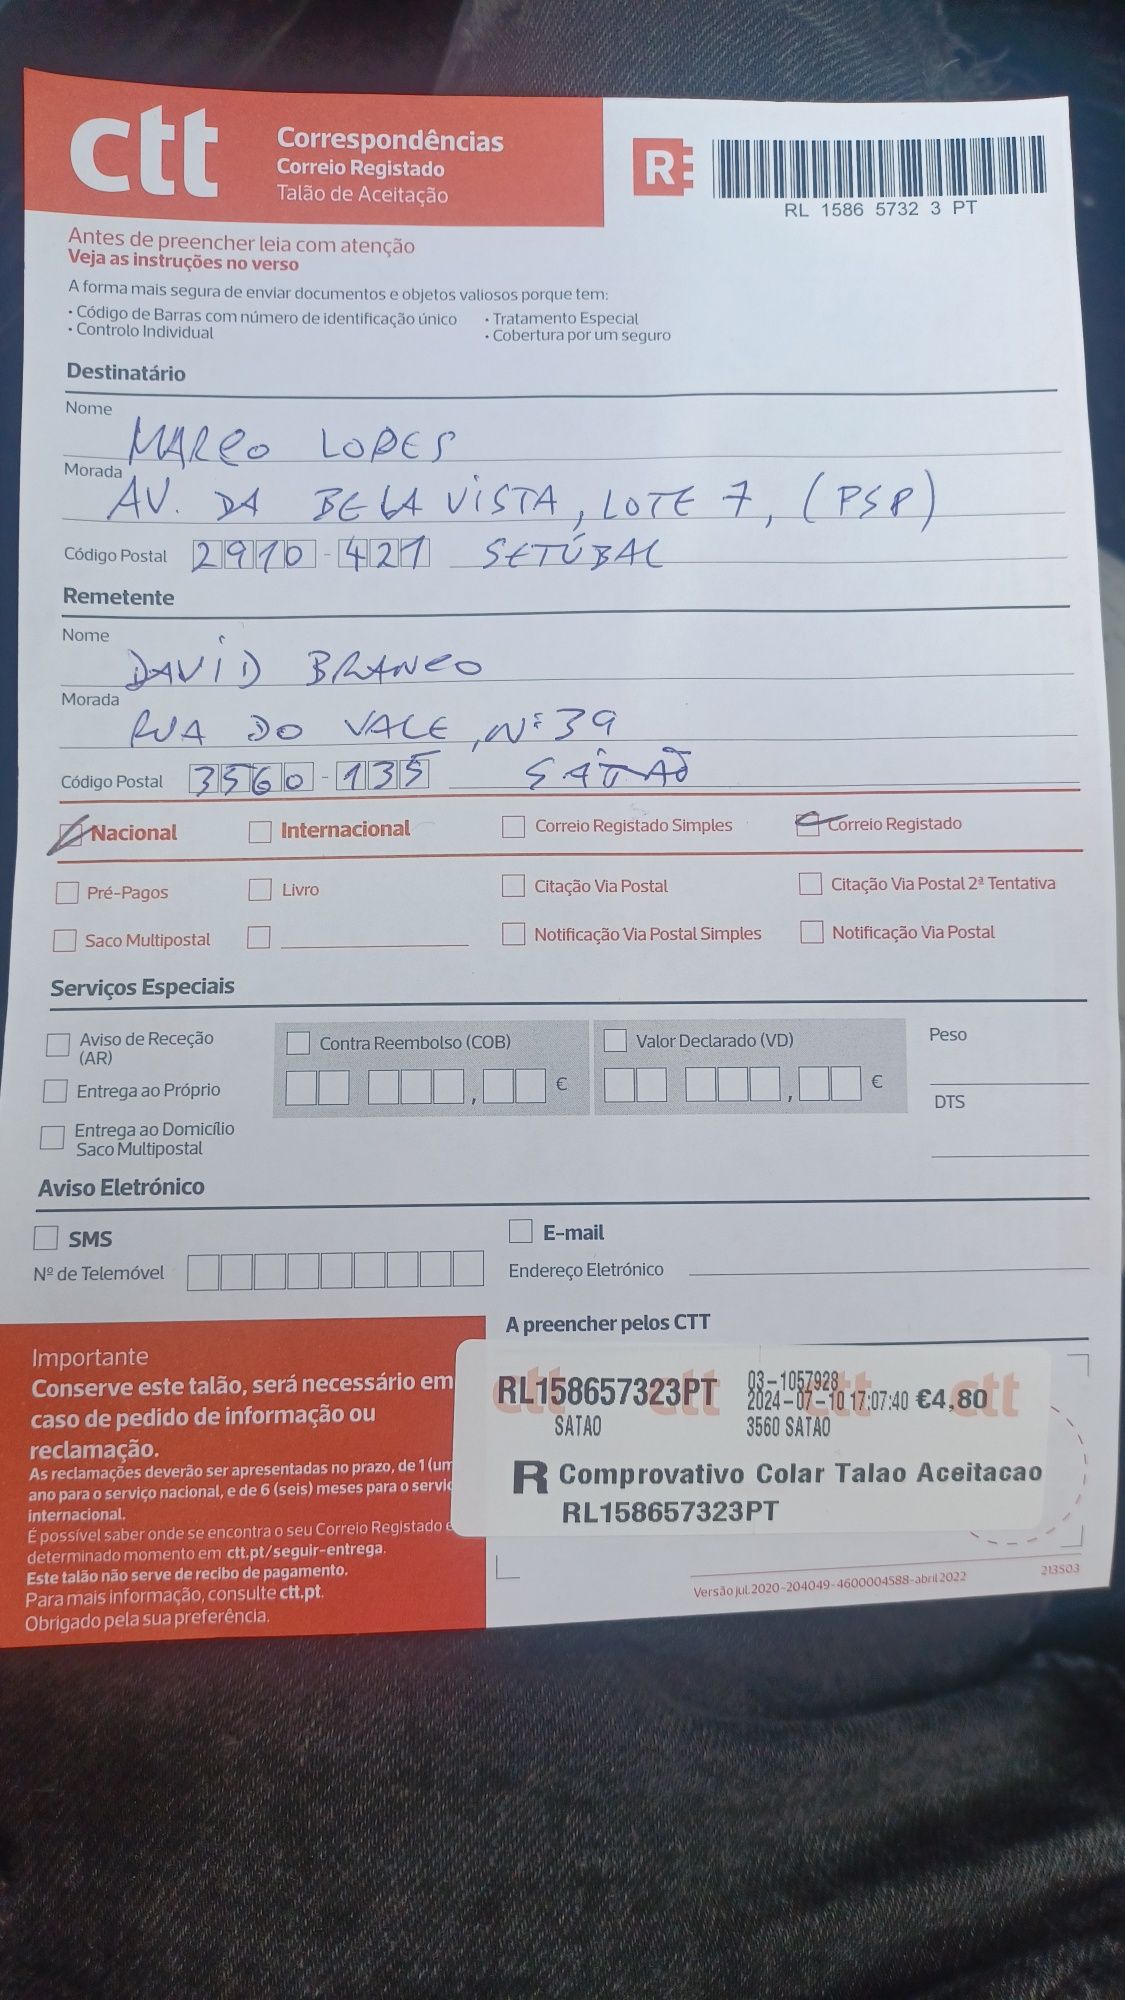 ctt
Correspondências
Correio Registado
Talão de Aceitação
R
RL 1586 5732 3 PT
Antes de preencher leia com atenção
Veja as instruções no verso
A forma mais segura de enviar documentos e objetos valiosos porque tem:
• Código de Barras com número de identificação único • Tratamento Especial
• Controlo Individual • Cobertura por um seguro
Destinatário
Nome MARCO LOPES
Morada AV. DA BELA VISTA, LOTE 7, (PSP)
Código Postal 2910-421 SETÚBAL
Remetente
Nome DAVID BRANCO
Morada RUA DO VALE, Nº 39
Código Postal 3560-135 SÁTÃO
Nacional Internacional Correio Registado Simples Correio Registado
Pré-Pagos Livro Citação Via Postal Citação Via Postal 2ª Tentativa
Saco Multipostal Notificação Via Postal Simples Notificação Via Postal
Serviços Especiais
Aviso de Receção (AR) Contra Reembolso (COB) Valor Declarado (VD) Peso
Entrega ao Próprio , € , € DTS
Entrega ao Domicílio
Saco Multipostal
Aviso Eletrónico
SMS E-mail
Nº de Telemóvel Endereço Eletrónico
A preencher pelos CTT
Importante
Conserve este talão, será necessário em
caso de pedido de informação ou
reclamação.
As reclamações deverão ser apresentadas no prazo, de 1 (um
ano para o serviço nacional, e de 6 (seis) meses para o serviç
internacional.
É possível saber onde se encontra o seu Correio Registado e
determinado momento em ctt.pt/seguir-entrega.
Este talão não serve de recibo de pagamento.
Para mais informação, consulte ctt.pt.
Obrigado pela sua preferência.
ctt ctt ctt ctt
RL158657323PT 03-1057928
2024-07-10 17:07:40 €4,80
SATAO 3560 SATAO
R Comprovativo Colar Talao Aceitacao
RL158657323PT
Versão jul.2020-204049-4600004588-abril2022 213503